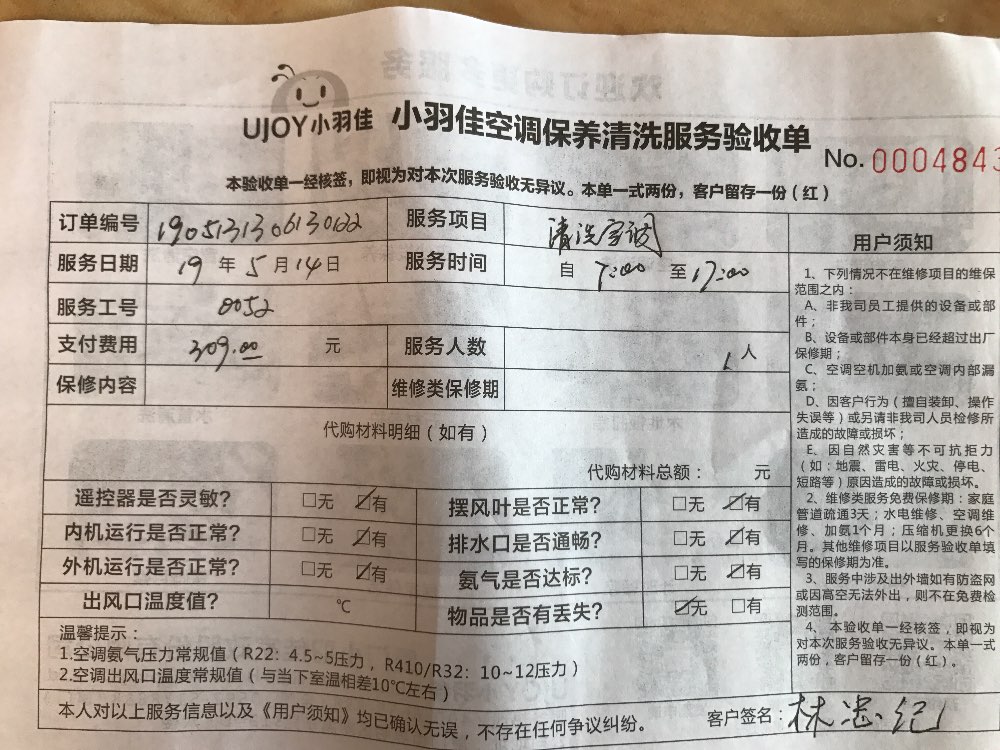 UJOY小羽佳 小羽佳空调保养清洗服务验收单
No. 0004843
本验收单一经核签，即视为对本次服务验收无异议。本单一式两份，客户留存一份（红）
订单编号 1905131306130122 服务项目 清洗空调
服务日期 19 年 5 月 14 日 服务时间 自 7:00 至 17:00
服务工号 0052
支付费用 309.00 元 服务人数 1 人
保修内容 维修类保修期
代购材料明细（如有）
代购材料总额： 元
遥控器是否灵敏？ □无 ☑有 摆风叶是否正常？ □无 ☑有
内机运行是否正常？ □无 ☑有 排水口是否通畅？ □无 ☑有
外机运行是否正常？ □无 ☑有 氨气是否达标？ □无 ☑有
出风口温度值？ ℃ 物品是否有丢失？ ☑无 □有
温馨提示：
1.空调氨气压力常规值（R22：4.5~5压力，R410/R32：10~12压力）
2.空调出风口温度常规值（与当下室温相差10℃左右）
本人对以上服务信息以及《用户须知》均已确认无误，不存在任何争议纠纷。
客户签名：林忠纪
用户须知
1、下列情况不在维修项目的维保
范围之内：
A、非我司员工提供的设备或部
件；
B、设备或部件本身已经超过出厂
保修期；
C、空调空机加氨或空调内部漏
氨；
D、因客户行为（擅自装卸、操作
失误等）或另请非我司人员检修所
造成的故障或损坏；
E、因自然灾害等不可抗拒力
（如：地震、雷电、火灾、停电、
短路等）原因造成的故障或损坏。
2、维修类服务免费保修期：家庭
管道疏通3天；水电维修、空调维
修、加氨1个月；压缩机更换6个
月。其他维修项目以服务验收单填
写的保修期为准。
3、服务中涉及出外墙如有防盗网
或因高空无法外出，则不在免费检
测范围。
4、本验收单一经核签，即视为
对本次服务验收无异议。本单一式
两份，客户留存一份（红）。